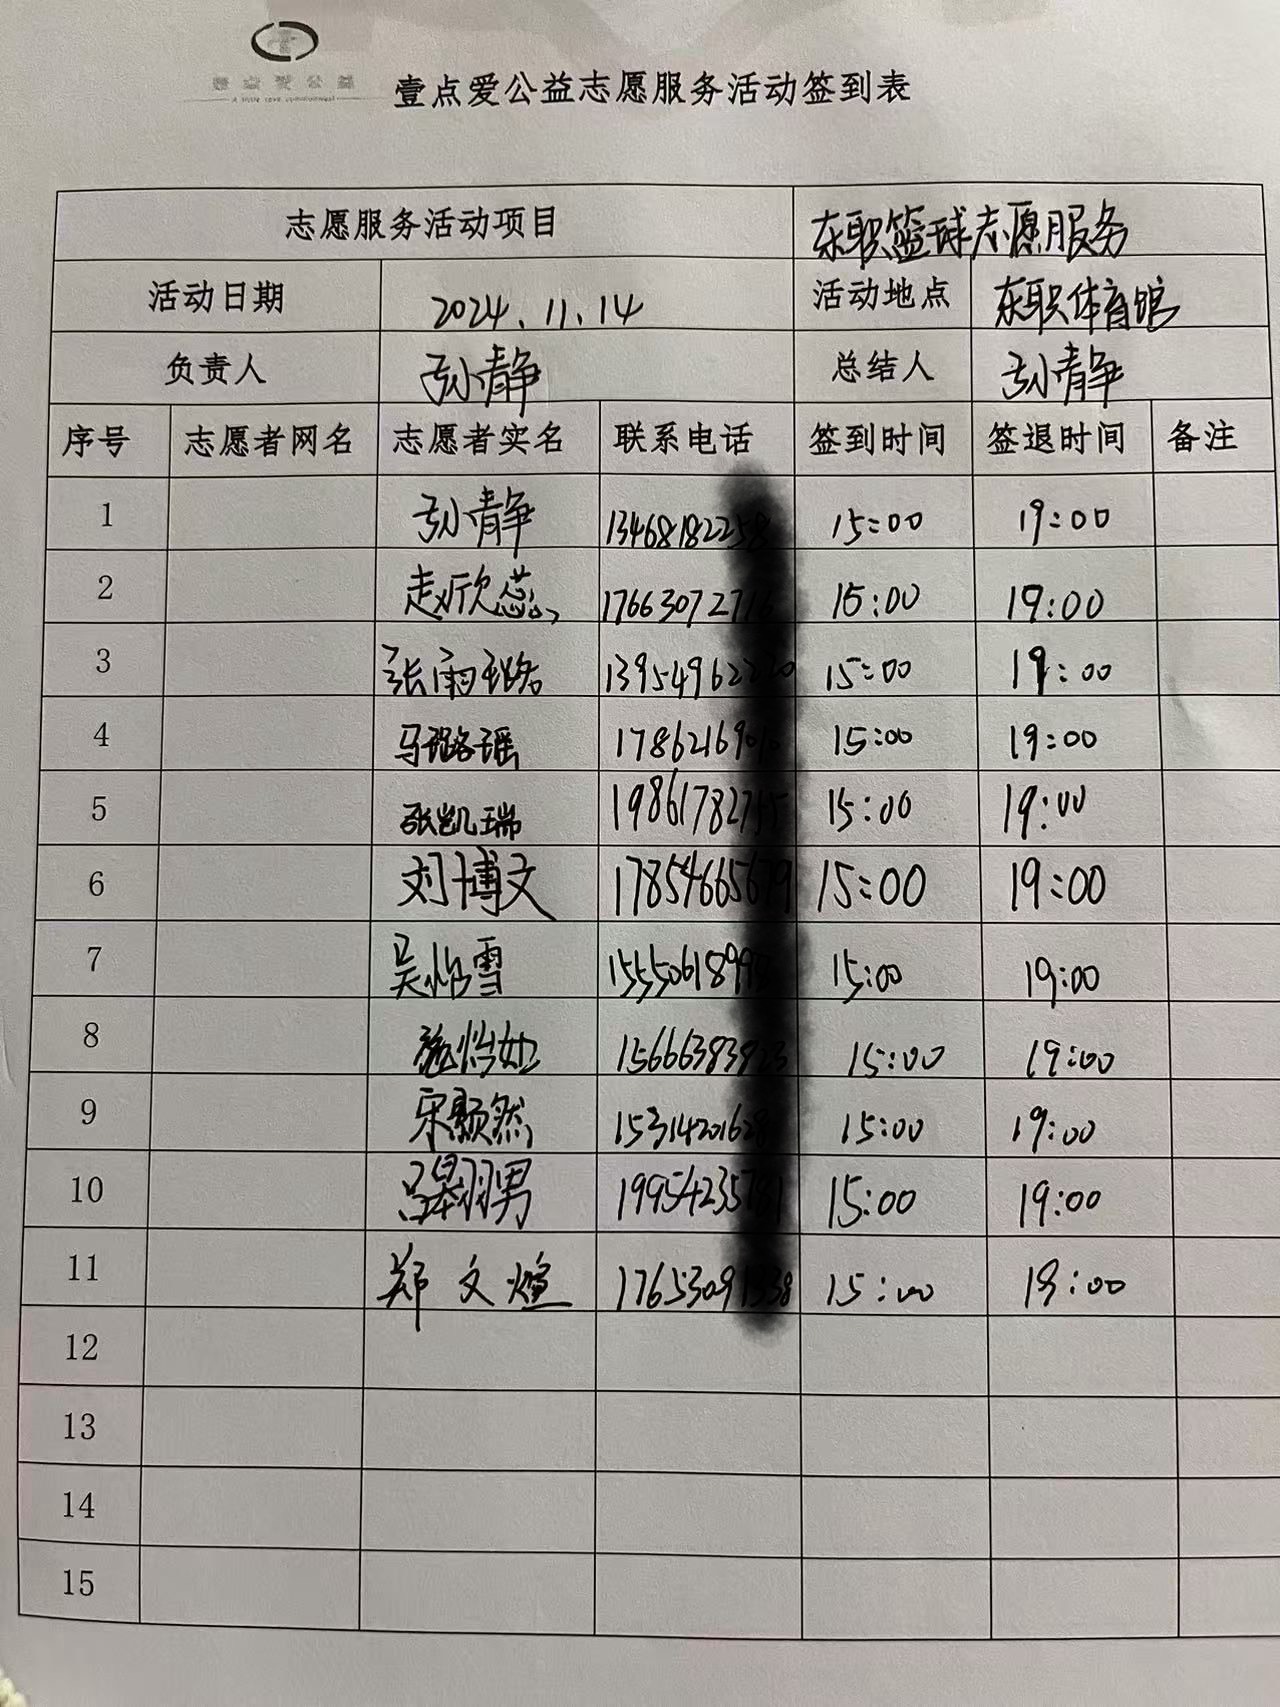 壹点爱公益
A little love commonweal
壹点爱公益志愿服务活动签到表
志愿服务活动项目 东职篮球志愿服务
活动日期 2024.11.14 活动地点 东职体育馆
负责人 孙静 总结人 孙静
序号 志愿者网名 志愿者实名 联系电话 签到时间 签退时间 备注
1 孙静 15:00 19:00
2 赵欣蕊 15:00 19:00
3 张雨璐 15:00 19:00
4 马璐瑶 15:00 19:00
5 张凯瑞 15:00 19:00
6 刘博文 15:00 19:00
7 吴怡雪 15:00 19:00
8 施怡如 15:00 19:00
9 宋颢然 15:00 19:00
10 15:00 19:00
11 郑文煊 15:00 19:00
12
13
14
15